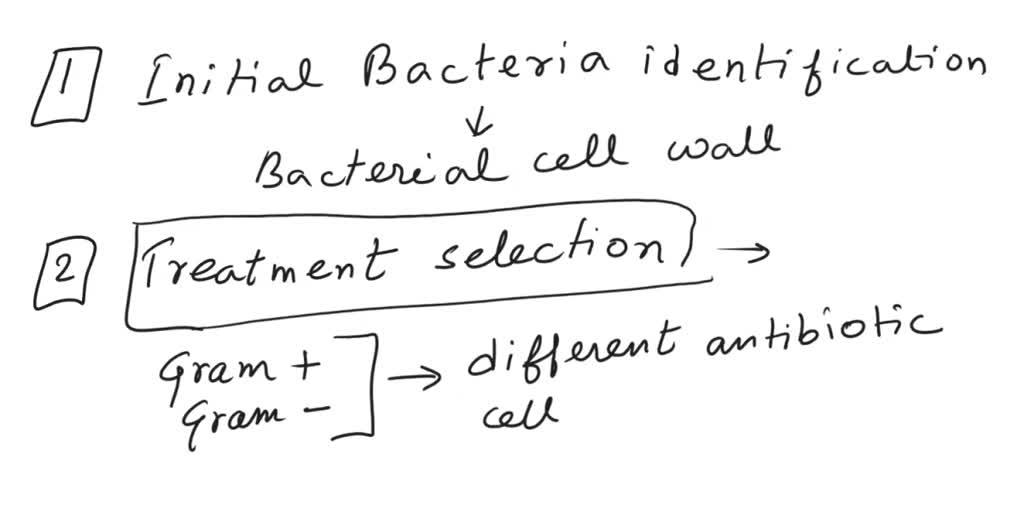 1 Initial Bacteria identification
↓
Bacterial cell wall
2 Treatment selection →
Gram + ] → different antibiotic
Gram - cell